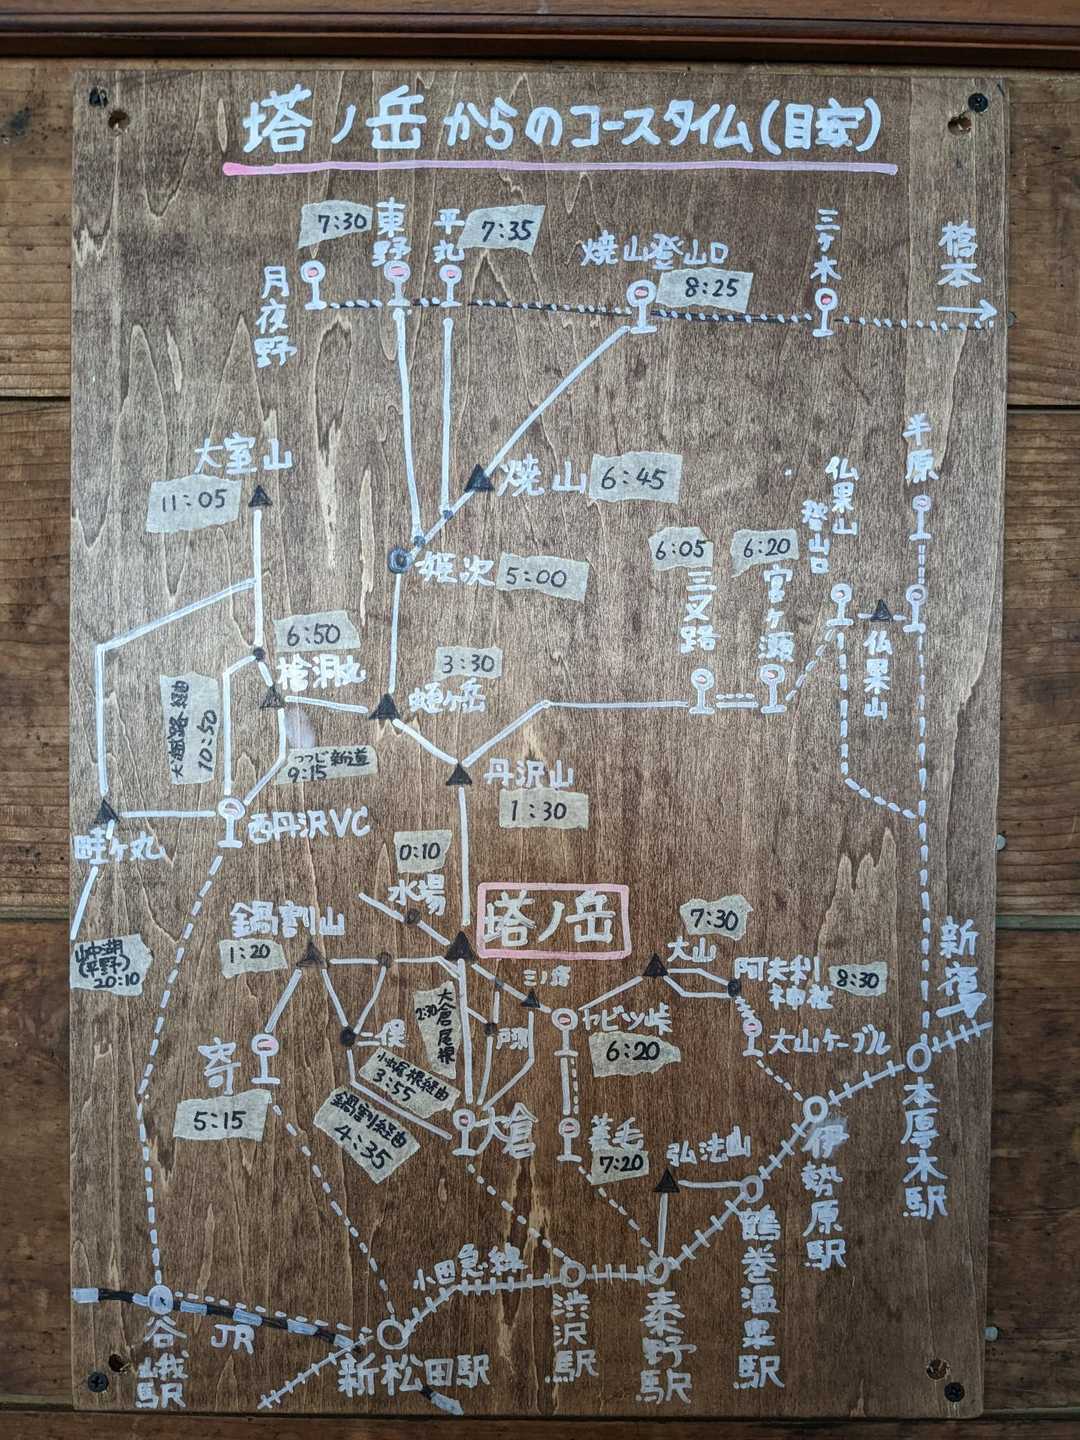 塔ノ岳からのコースタイム(目安)
7:30
東野
平丸
7:35
焼山登山口
8:25
三ヶ木
橋本
月夜野
大室山
11:05
焼山
6:45
半原
仏果山
登山口
姫次
5:00
6:05
三叉路
6:20
宮ヶ瀬
仏果山
6:50
檜洞丸
3:30
蛭ヶ岳
10:50
つつじ新道
9:15
丹沢山
1:30
畦ヶ丸
西丹沢VC
0:10
水場
塔ノ岳
鍋割山
1:20
7:30
大山
阿夫利
神社
8:30
新宿
山中湖
(平野)
20:10
三ノ塔
大倉尾根
2:30
二俣
戸沢
ヤビツ峠
6:20
大山ケーブル
寄
5:15
3:55
鍋割経由
4:35
大倉
蓑毛
7:20
弘法山
本厚木駅
伊勢原駅
鶴巻温泉駅
小田急線
渋沢駅
秦野駅
新松田駅
JR
谷峨駅